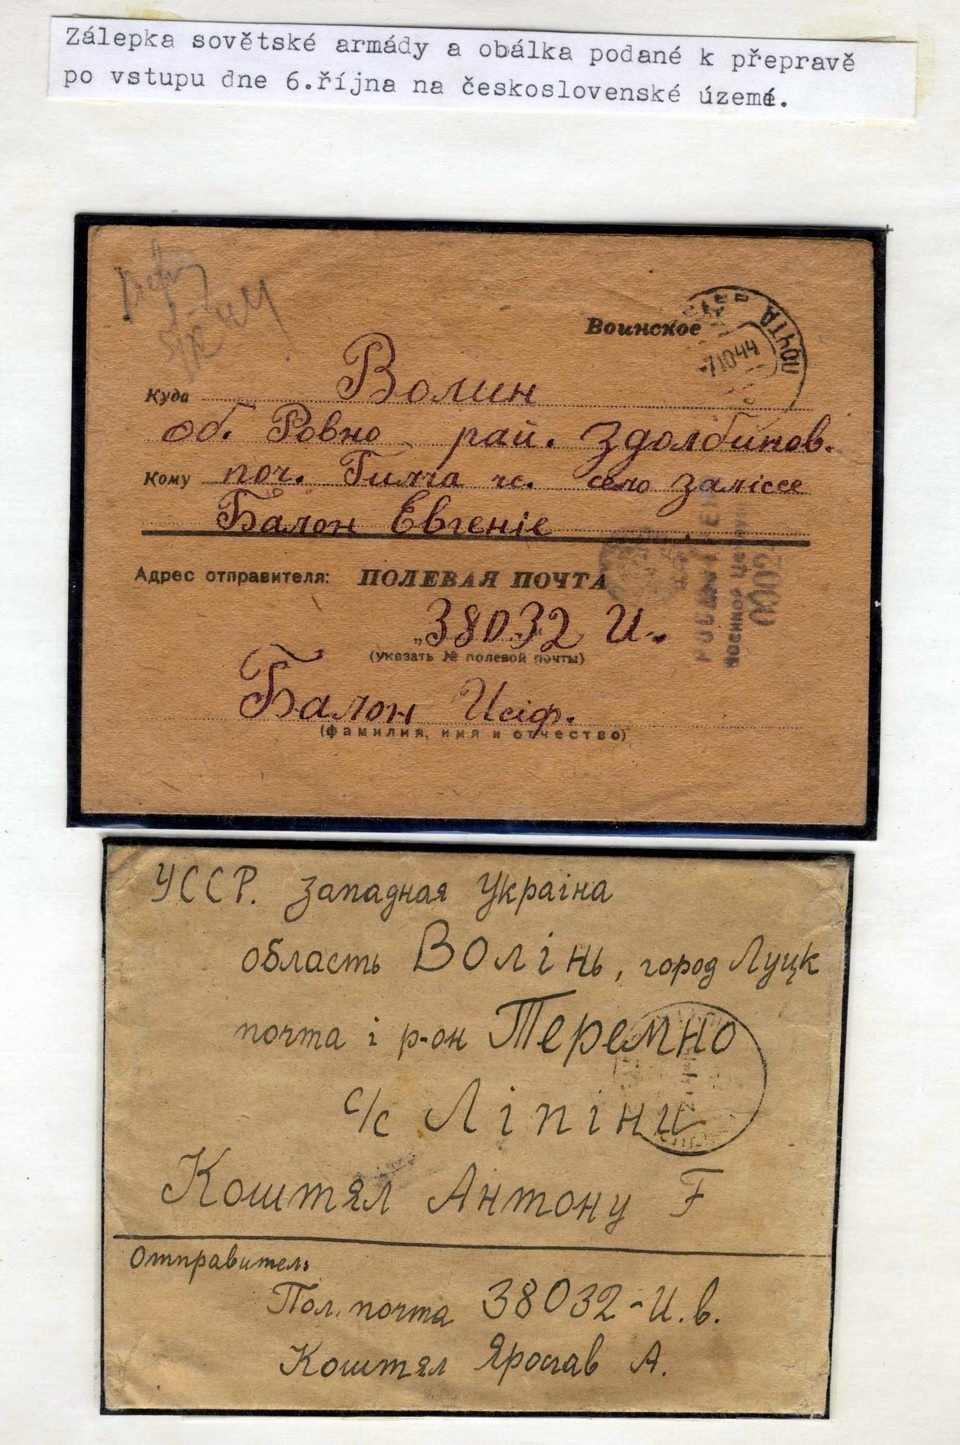 Zálepka sovětské armády a obálka podané k přepravě
po vstupu dne 6.října na československé území.
Воинское
ПОЧТА
7 10 44
Куда Волин
об. Ровно рай. Здолбинов.
Кому поч. Гилча чс. село Заліссе
Балон Евгеніє
Адрес отправителя: ПОЛЕВАЯ ПОЧТА
„38032" И.
(указать № полевой почты)
Балон Исіф.
(фамилия, имя и отчество)
Военной Цензурой
УССР. Западная Україна
область Волінь, город Луцк
почта і р-он Теремно
с/с Ліпіни
Коштял Антону F
Отправитель
Пол. почта 38032-И.в.
Коштял Ярослав А.